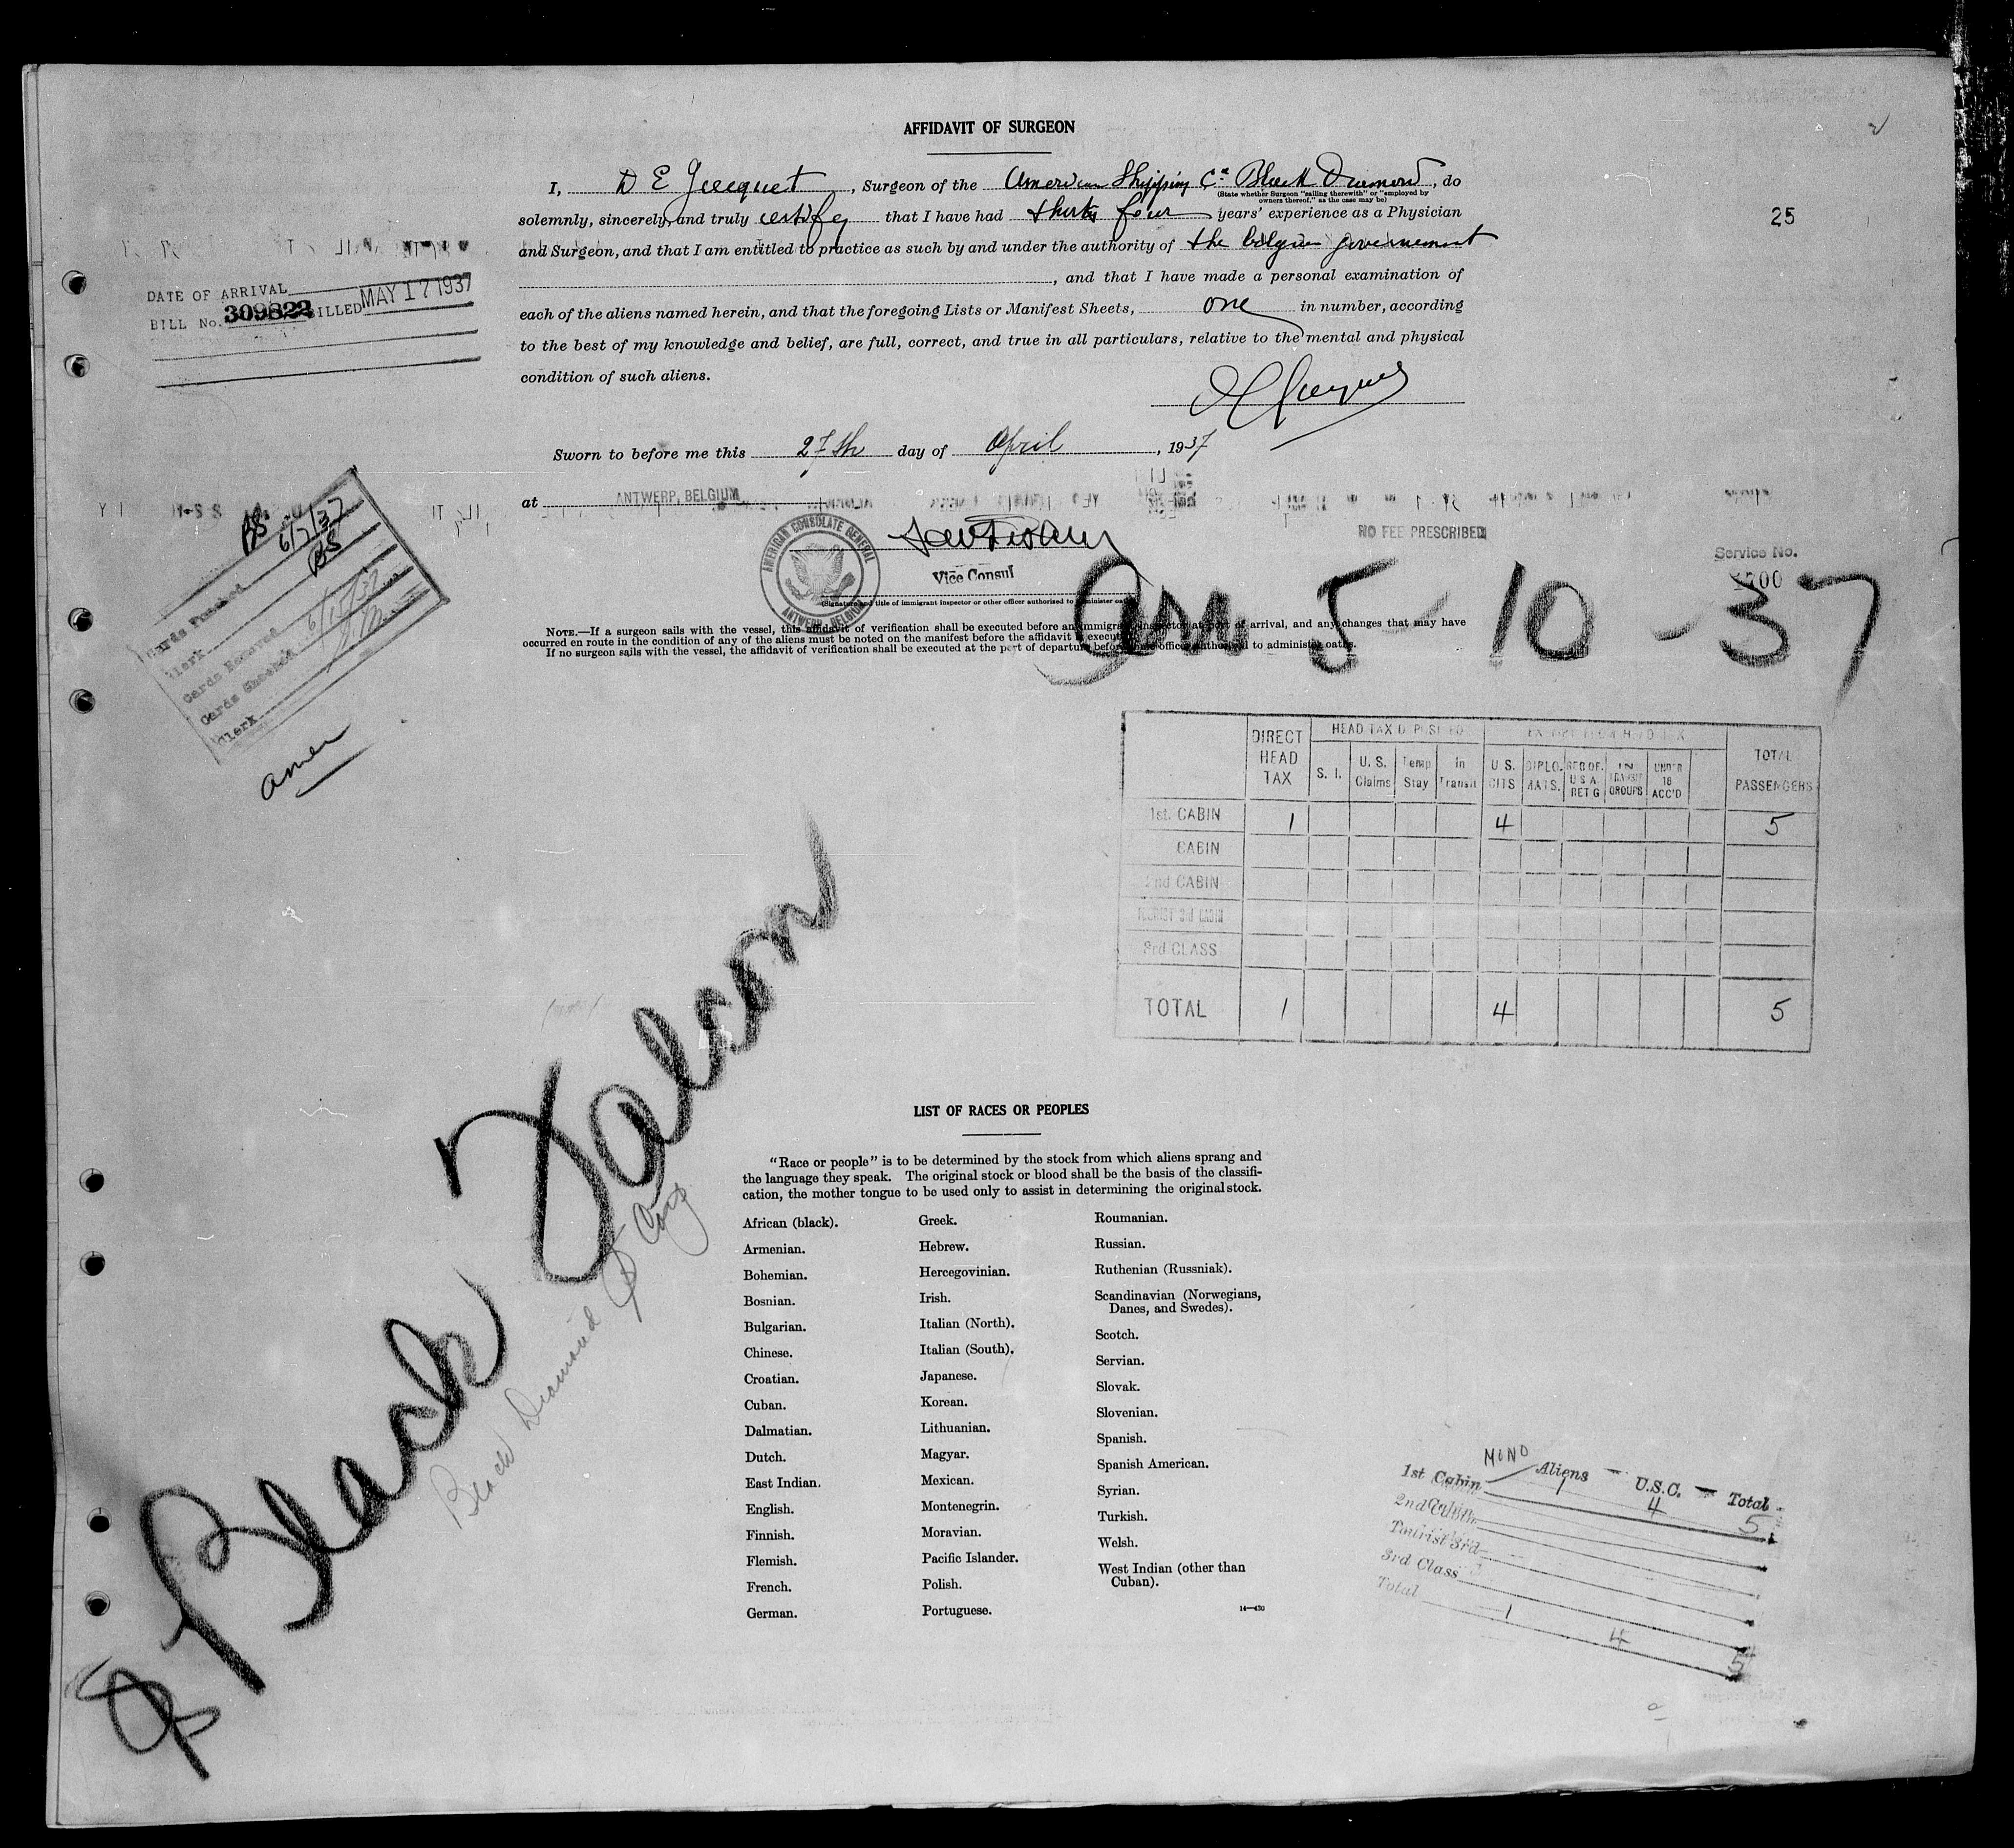 AFFIDAVIT OF SURGEON
I, D E Jacquet, Surgeon of the American Shipping Co Black Diamond, do
(State whether Surgeon "sailing therewith" or "employed by
owners thereof," as the case may be)
solemnly, sincerely, and truly certify that I have had thirty four years' experience as a Physician
and Surgeon, and that I am entitled to practice as such by and under the authority of the belgian governement
, and that I have made a personal examination of
each of the aliens named herein, and that the foregoing Lists or Manifest Sheets, one in number, according
to the best of my knowledge and belief, are full, correct, and true in all particulars, relative to the mental and physical
condition of such aliens.
Sworn to before me this 27th day of April, 1937
at ANTWERP, BELGIUM
AMERICAN CONSULATE GENERAL
ANTWERP, BELGIUM
Vice Consul
(Signature and title of immigrant inspector or other officer authorized to administer oaths)
NO FEE PRESCRIBED
Service No.
25
DATE OF ARRIVAL
BILL No. 309822 BILLED MAY 17 1937
NOTE.—If a surgeon sails with the vessel, this affidavit of verification shall be executed before an immigrant inspector at port of arrival, and any changes that may have
occurred en route in the condition of any of the aliens must be noted on the manifest before the affidavit is executed.
If no surgeon sails with the vessel, the affidavit of verification shall be executed at the port of departure before some officer authorized to administer oaths.
Arr 5-10-37
Cards Punched 6/7/37
Clerk BS
Cards Removed
Cards Checked
Clerk
amer
DIRECT HEAD TAX
HEAD TAX DEPOSITED
EXEMPT FROM HEAD TAX
TOTAL PASSENGERS
S. I.
U. S. Claims
Temp Stay
In Transit
U S. CITS
DIPLOMATS.
RES OF. U S A RET G
IN TRANSIT GROUPS
UNDER 16 ACC'D
1st. CABIN 1 4 5
CABIN
2nd CABIN
TOURIST 3rd CABIN
3rd CLASS
TOTAL 1 4 5
Black Falcon
Black Diamond
LIST OF RACES OR PEOPLES
"Race or people" is to be determined by the stock from which aliens sprang and
the language they speak. The original stock or blood shall be the basis of the classifi-
cation, the mother tongue to be used only to assist in determining the original stock.
African (black).
Armenian.
Bohemian.
Bosnian.
Bulgarian.
Chinese.
Croatian.
Cuban.
Dalmatian.
Dutch.
East Indian.
English.
Finnish.
Flemish.
French.
German.
Greek.
Hebrew.
Hercegovinian.
Irish.
Italian (North).
Italian (South).
Japanese.
Korean.
Lithuanian.
Magyar.
Mexican.
Montenegrin.
Moravian.
Pacific Islander.
Polish.
Portuguese.
Roumanian.
Russian.
Ruthenian (Russniak).
Scandinavian (Norwegians,
Danes, and Swedes).
Scotch.
Servian.
Slovak.
Slovenian.
Spanish.
Spanish American.
Syrian.
Turkish.
Welsh.
West Indian (other than
Cuban).
14—430
Aliens — U.S.C. — Total
1st Cabin 1 4 5
2nd Cabin
Tourist 3rd
3rd Class
Total 1 4 5